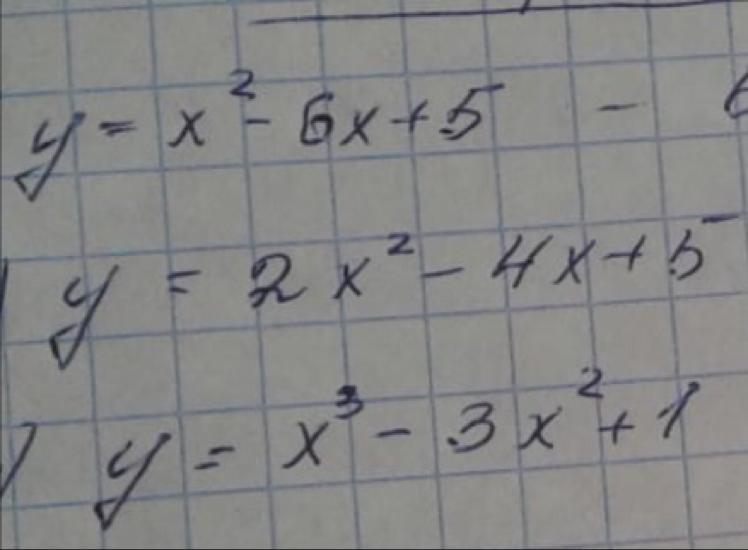 y = x² - 6x + 5 -
) y = 2x² - 4x + 5
) y = x³ - 3x² + 1